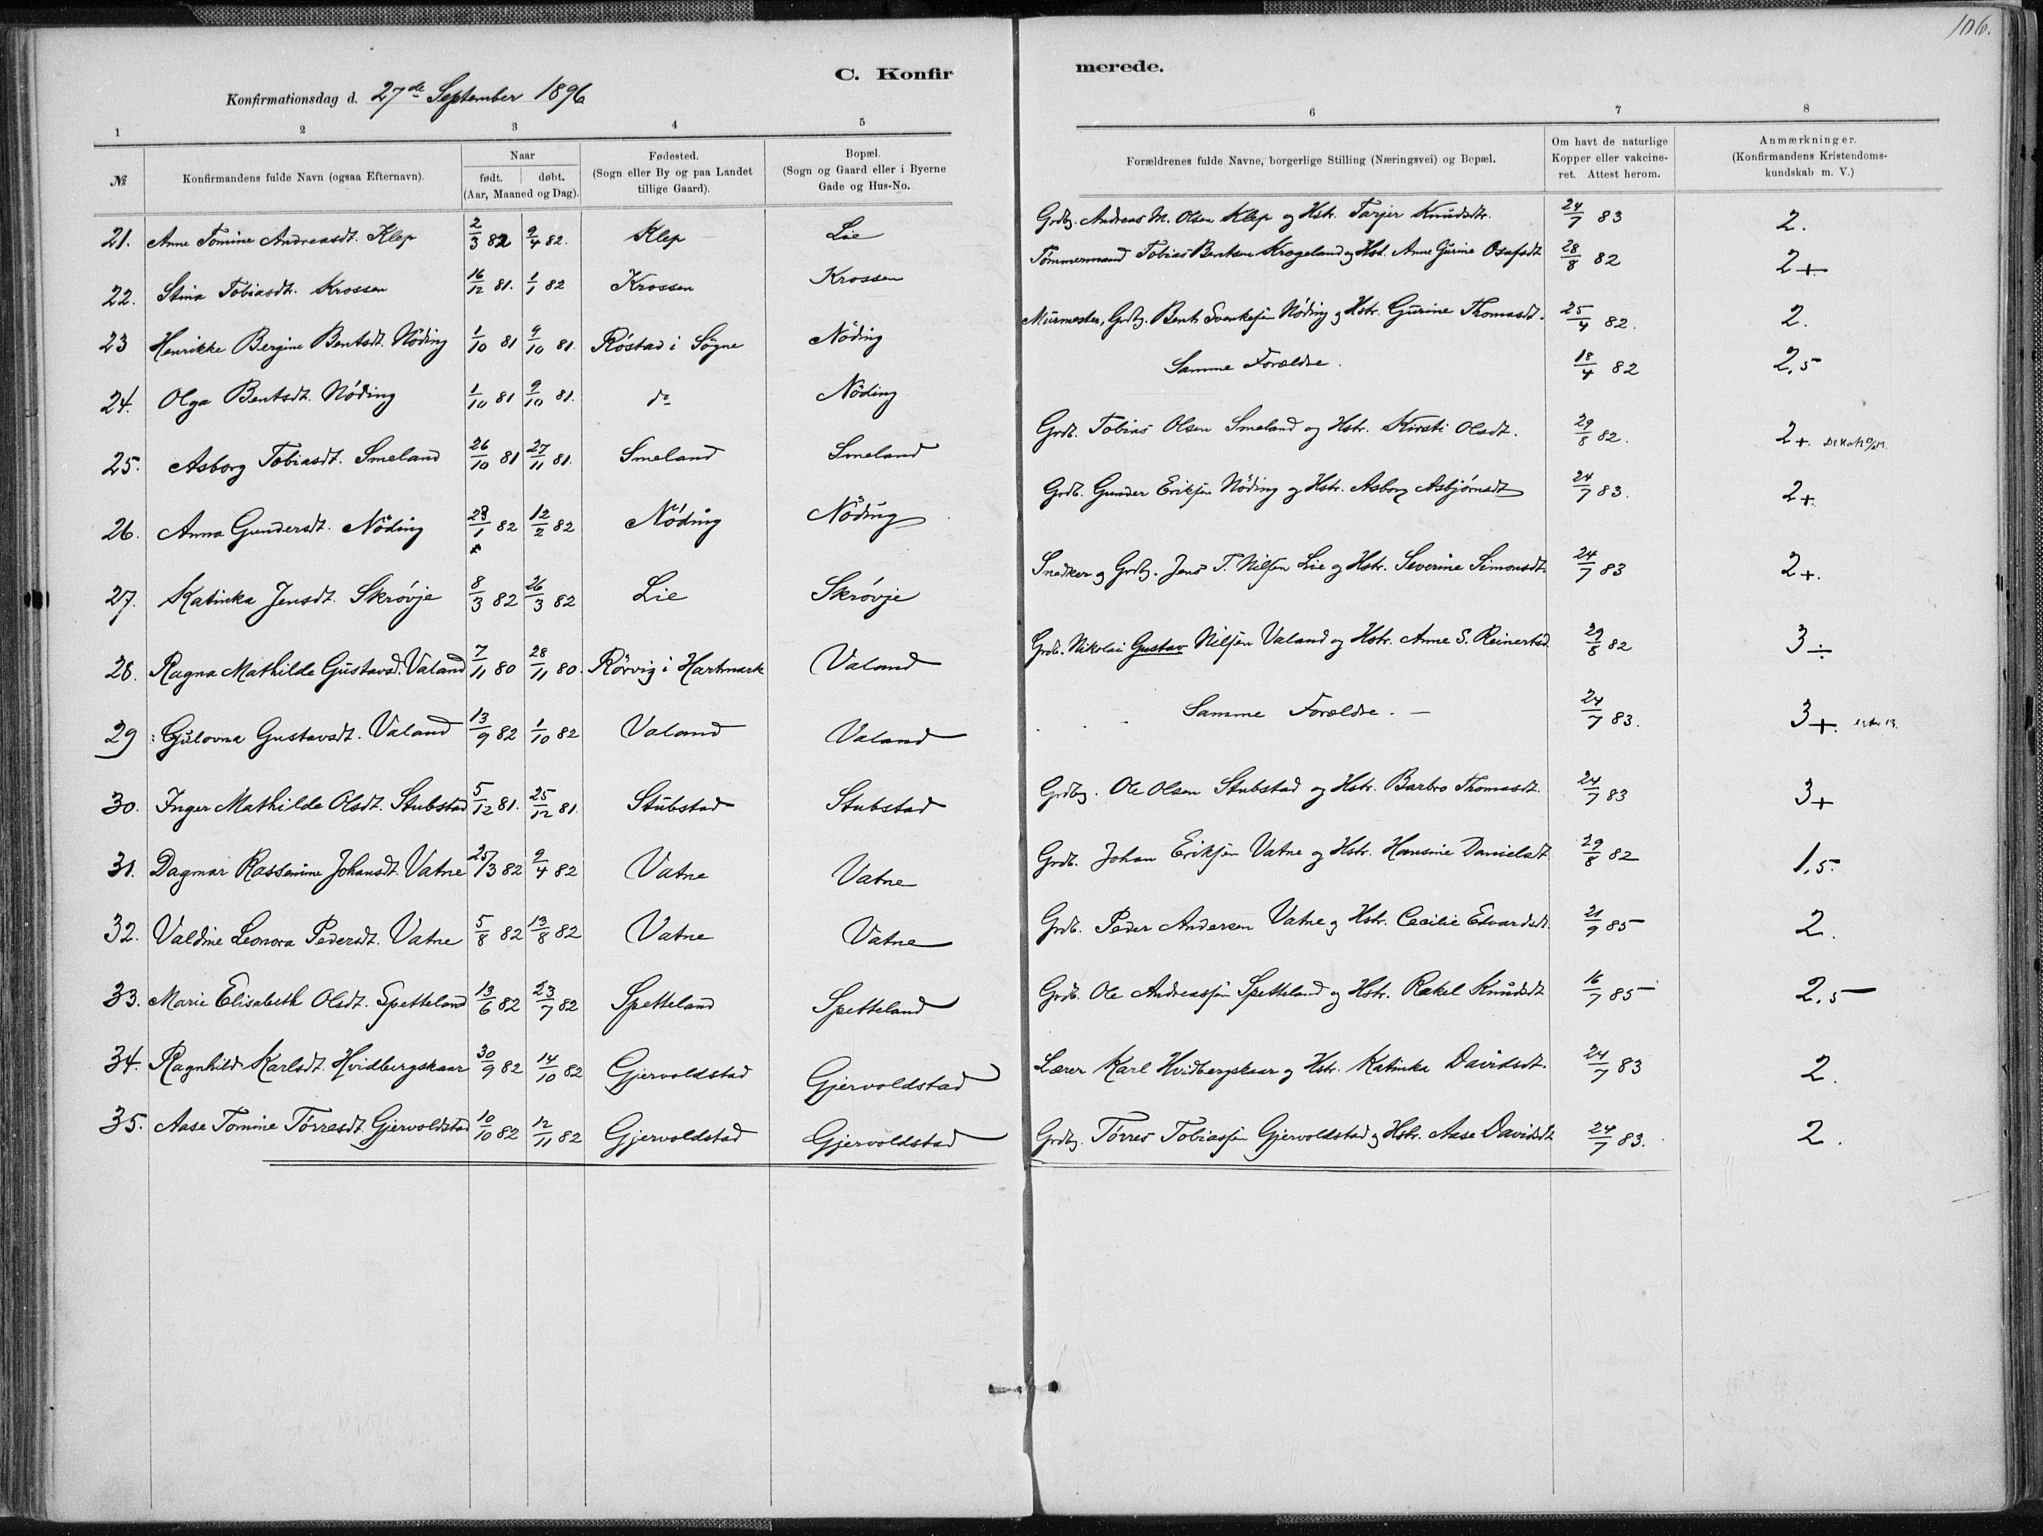 106.
C. Konfirmerede.
Konfirmationsdag d. 27de September 1896
1 2 3 4 5 6 7 8
№ Konfirmandens fulde Navn (ogsaa Efternavn). Naar født. døbt. (Aar, Maaned og Dag). Fødested. (Sogn eller By og paa Landet tillige Gaard). Bopæl. (Sogn og Gaard eller i Byerne Gade og Hus-No. Forældrenes fulde Navne, borgerlige Stilling (Næringsvei) og Bopæl. Om havt de naturlige Kopper eller vakcineret. Attest herom. Anmærkninger. (Konfirmandens Kristendomskundskab m. V.)
21. Anne Tomine Andreasdt. Klep 2/3 82 9/4 82. Klep Lie Grdbg. Andreas M. Olsen Klep og Hstr. Tarjer Knudsdtr. 24/7 83 2.
22. Stina Tobiasdt. Krossen 16/12 81. 1/1 82 Krossen Krossen Tømmermand Tobias Bentsen Krogeland og Hst. Anne Gurine Osufsdt 28/8 82 2+
23 Henrikke Bergine Bentsdt. Nöding 1/10 81 9/10 81. Röstad i Sögne Nöding Murmester, Grdbg. Bent Svenkesen Nöding og Hstr. Gurine Thomasdt. 25/4 82. 2.
24. Olga Bentsdt. Nöding 1/10 81 9/10 81. do Nöding Samme Forældre. 18/4 82 2,5
25. Asborg Tobiasdt. Smeland 26/10 81 27/11 81. Smeland Smeland Grdb. Tobias Olsen Smeland og Hstr. Kirsti Olsdt. 29/8 82. 2+.
26. Anna Gundersdt. Nöding 23/1 82 12/2 82 Nöding Nöding Grdb. Gunder Eriksen Nöding og Hstr. Asborg Asbjørnsdt 24/7 83. 2+
27. Katinka Jensdt. Skrövje 8/3 82 26/3 82 Lie Skrövje Snedker og Grdbg. Jens T. Nilsen Lie og Hstr. Severine Simonsdt. 24/7 83 2+.
28. Ragna Mathilde Gustavsd. Valand 7/11 80 28/11 80. Rörvig i Hartmark Valand Grdb. Nikolai Gustav Nilsen Valand og Hstr. Anne S. Reinertsd. 29/8 82 3÷
29 Gulovna Gustavsdt. Valand 13/9 82 1/10 82 Valand Valand Samme Forældre. — 24/7 83. 3+.
30. Inger Mathilde Olsdt. Stubstad 5/12 81. 25/12 81. Stubstad Stubstad Grdbg. Ole Olsen Stubstad og Hstr. Barbro Thomasdt. 24/7 83 3+
31. Dagmar Rassmine Johansdt. Vatne 25/3 82 9/4 82 Vatne Vatne Grdb. Johan Eriksen Vatne og Hstr. Hansine Danielsdt 29/8 82 1,5.
32. Valdine Leonora Pedersdt. Vatne 5/8 82 13/8 82 Vatne Vatne Grdb. Peder Andersen Vatne og Hstr. Cecilie Edvardsdt. 21/9 85 2.
33. Marie Elisabeth Olsdt. Spetteland 13/6 82 23/7 82 Spetteland Spetteland Grdb. Ole Andreassen Spetteland og Hstr. Rakel Knudsdt 16/7 85 2,5
34. Ragnhild Karlsdt. Hvidbergskaar 30/9 82 14/10 82 Gjervoldstad Gjervoldstad Lærer Karl Hvidbergskaar og Hstr. Katinka Davidsdt. 24/7 83 2.
35. Aase Tomine Törresdt. Gjervoldstad 10/10 82 12/11 82 Gjervoldstad Gjervoldstad Grdbg. Törres Tobiassen Gjervoldstad og Hstr. Aase Davidsdt 24/7 83. 2.